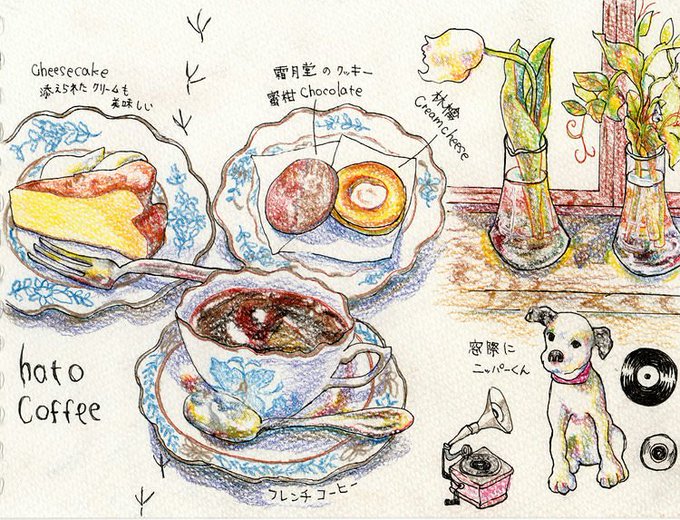 Cheesecake
添えられたクリームも
美味しい
霜月堂のクッキー
蜜柑 Chocolate
林檎
Creamcheese
hato
Coffee
フレンチコーヒー
窓際に
ニッパーくん